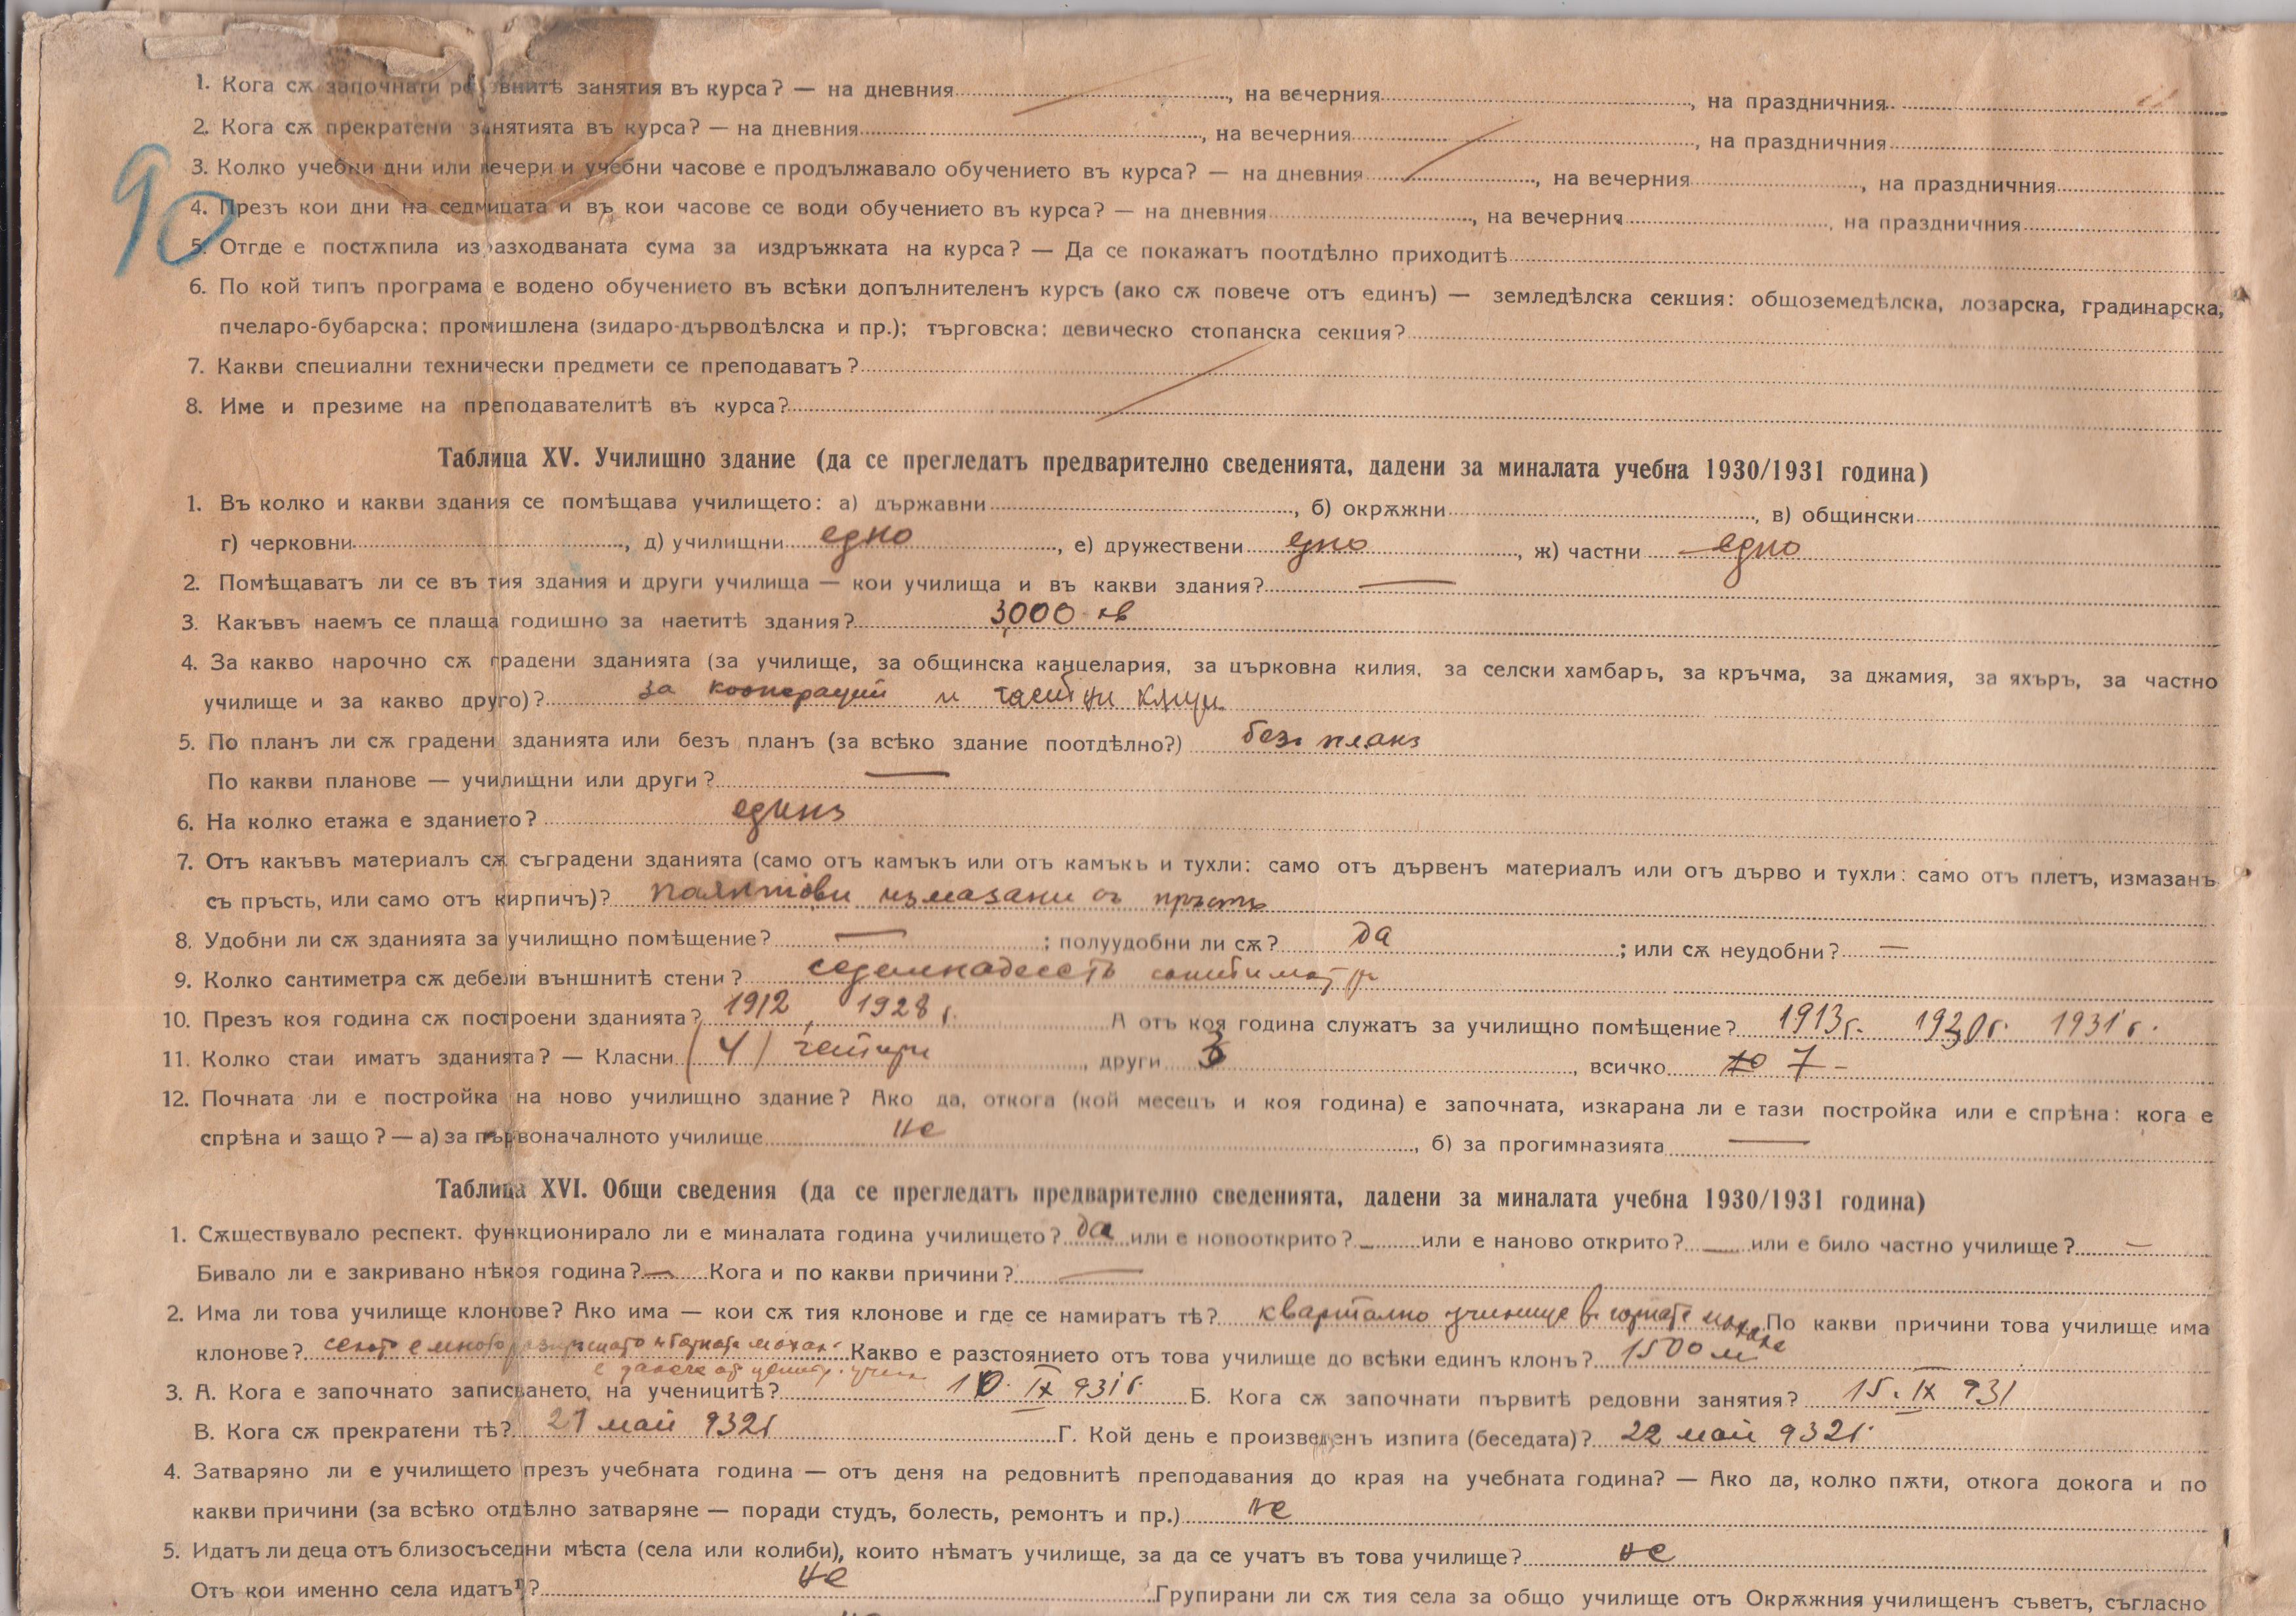 90
1. Кога сѫ започнати редовнитѣ занятия въ курса? — на дневния , на вечерния , на праздничния
2. Кога сѫ прекратени занятията въ курса? — на дневния , на вечерния , на праздничния
3. Колко учебни дни или вечери и учебни часове е продължавало обучението въ курса? — на дневния , на вечерния , на праздничния
4. Презъ кои дни на седмицата и въ кои часове се води обучението въ курса? — на дневния , на вечерния , на праздничния
5. Отгде е постѫпила изразходваната сума за издръжката на курса? — Да се покажатъ поотдѣлно приходитѣ
6. По кой типъ програма е водено обучението въ всѣки допълнителенъ курсъ (ако сѫ повече отъ единъ) — земледѣлска секция: общоземедѣлска, лозарска, градинарска,
пчеларо-бубарска; промишлена (зидаро-дърводѣлска и пр.); търговска; девическо стопанска секция?
7. Какви специални технически предмети се преподаватъ?
8. Име и презиме на преподавателитѣ въ курса?
Таблица XV. Училишно здание (да се прегледатъ предварително сведенията, дадени за миналата учебна 1930/1931 година)
1. Въ колко и какви здания се помѣщава училището: а) държавни , б) окрѫжни , в) общински
г) черковни , д) училищни едно , е) дружествени едно , ж) частни едно
2. Помѣщаватъ ли се въ тия здания и други училища — кои училища и въ какви здания? —
3. Какъвъ наемъ се плаща годишно за наетитѣ здания? 3000 лв
4. За какво нарочно сѫ градени зданията (за училище, за общинска канцелария, за църковна килия, за селски хамбаръ, за кръчма, за джамия, за яхъръ, за частно
училище и за какво друго)? за кооперации и частни кѫщи
5. По планъ ли сѫ градени зданията или безъ планъ (за всѣко здание поотдѣлно?) безъ планъ
По какви планове — училищни или други? —
6. На колко етажа е зданието? единъ
7. Отъ какъвъ материалъ сѫ съградени зданията (само отъ камъкъ или отъ камъкъ и тухли; само отъ дървенъ материалъ или отъ дърво и тухли; само отъ плетъ, измазанъ
съ пръсть, или само отъ кирпичъ)? паянтови измазани съ пръсть
8. Удобни ли сѫ зданията за училищно помѣщение? — ; полуудобни ли сѫ? да ; или сѫ неудобни? —
9. Колко сантиметра сѫ дебели външнитѣ стени? седемнадесеть сантиметри
10. Презъ коя година сѫ построени зданията? 1912, 1928 г. А отъ коя година служатъ за училищно помѣщение? 1913 г. 1930 г. 1931 г.
11. Колко стаи иматъ зданията? — Класни (4) четири , други 3 , всичко 7 —
12. Почната ли е постройка на ново училищно здание? Ако да, откога (кой месецъ и коя година) е започната, изкарана ли е тази постройка или е спрѣна: кога е
спрѣна и защо? — а) за първоначалното училище не , б) за прогимназията —
Таблица XVI. Общи сведения (да се прегледатъ предварително сведенията, дадени за миналата учебна 1930/1931 година)
1. Сѫществувало респект. функционирало ли е миналата година училището? да или е новооткрито? — или е наново открито? — или е било частно училище? —
Бивало ли е закривано нѣкоя година? — Кога и по какви причини? —
2. Има ли това училище клонове? Ако има — кои сѫ тия клонове и где се намиратъ тѣ? квартално училище въ горната махала По какви причини това училище има
клонове? селото е много и горната махала Какво е разстоянието отъ това училище до всѣки единъ клонъ? 1500 м
е далече отъ центр. учил.
3. А. Кога е започнато записването на ученицитѣ? 10. IX 931 г. Б. Кога сѫ започнати първитѣ редовни занятия? 15. IX 931
В. Кога сѫ прекратени тѣ? 21 май 932 г Г. Кой день е произведенъ изпита (беседата)? 22 май 932 г.
4. Затваряно ли е училището презъ учебната година — отъ деня на редовнитѣ преподавания до края на учебната година? — Ако да, колко пѫти, откога докога и по
какви причини (за всѣко отдѣлно затваряне — поради студъ, болесть, ремонтъ и пр.) не
5. Идатъ ли деца отъ близосъседни мѣста (села или колиби), които нѣматъ училище, за да се учатъ въ това училище? не
Отъ кои именно села идатъ¹)? не Групирани ли сѫ тия села за общо училище отъ Окрѫжния училищенъ съветъ, съгласно